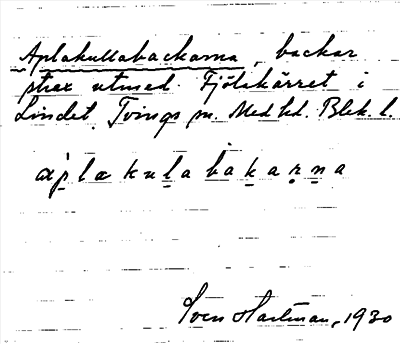 Aplakullabackarna, backar
strax utmed Fjölakärret i
Lindet, Tvings sn. Medelsd. Blek. l.
æ̀p̣læ kuḷa bakạṛṇa
Sven Hartman, 1930